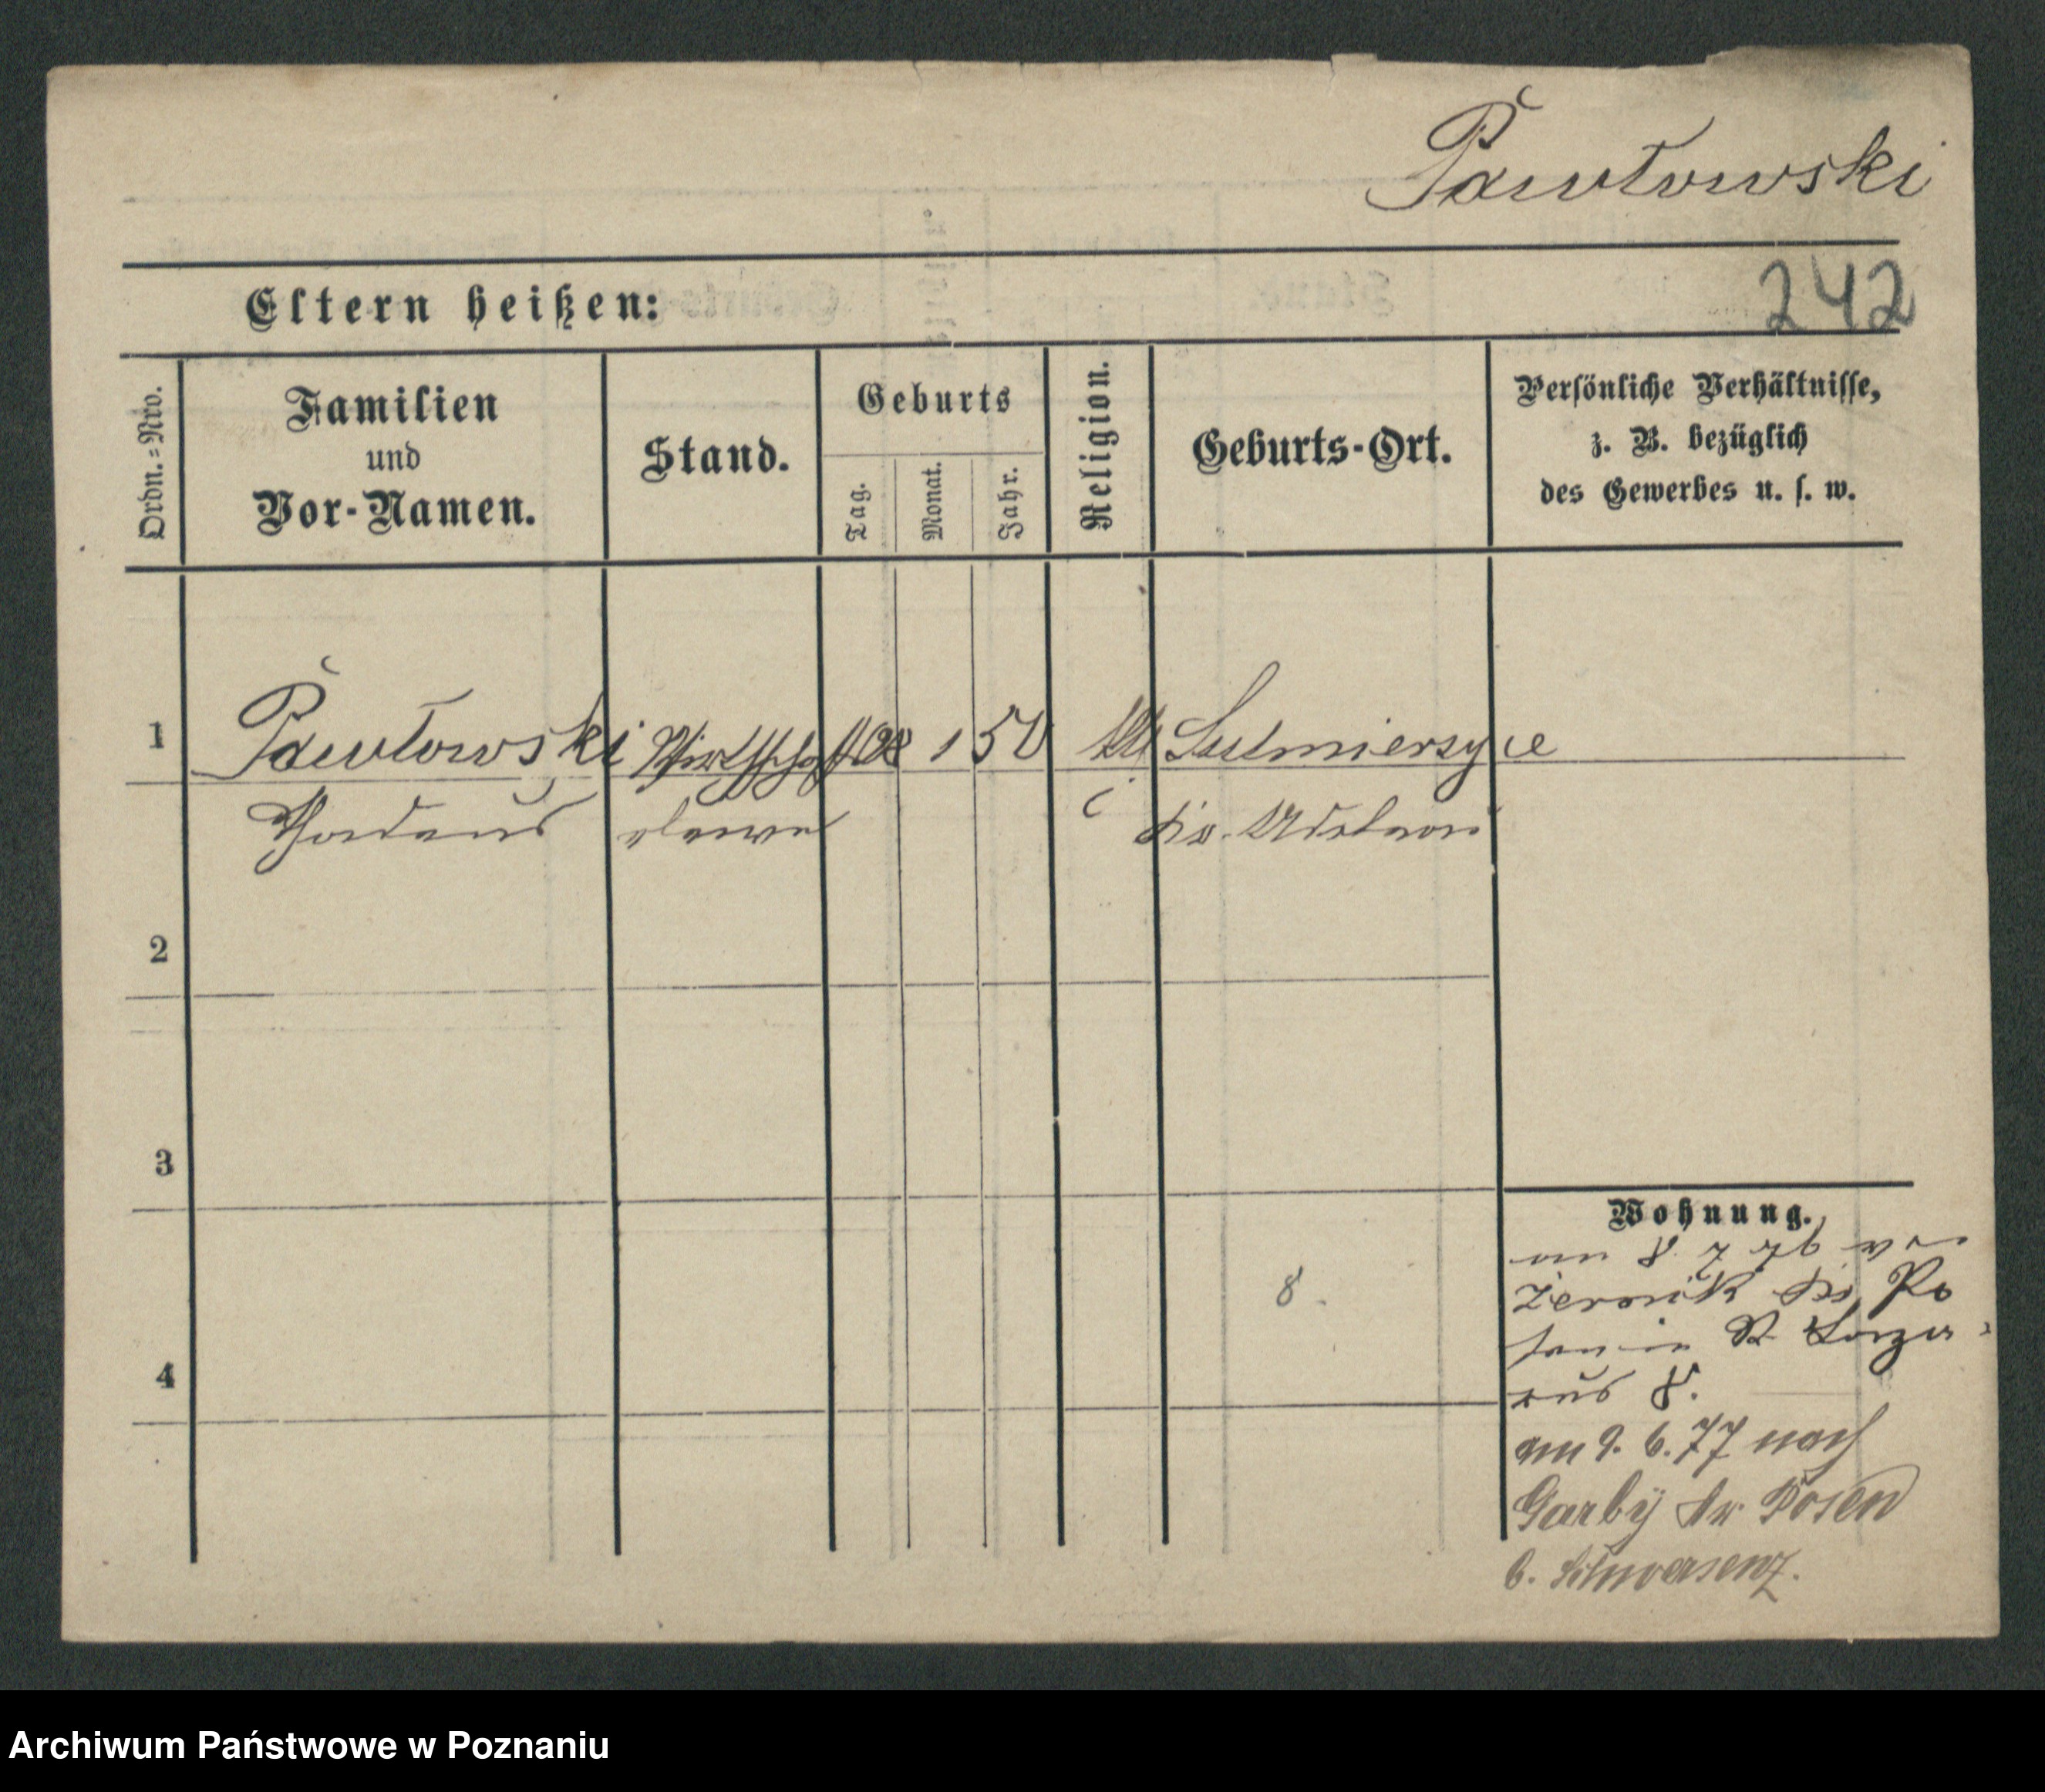 Pawłowski
242
Eltern heißen:
Ordn.=Nro.
Familien
und
Vor-Namen.
Stand.
Geburts
Tag.
Monat.
Jahr.
Religion.
Geburts-Ort.
Persönliche Verhältnisse,
z. B. bezüglich
des Gewerbes u. s. w.
1 Pawłowski Wirthschafts 28 1 50 Sulmierzyce
Thadeus eleve Kr. Adelnau
2
3
4
8
Wohnung.
am 8 7 76 von
Żernik Kr. Po
sen in St Laza
rus 8.
am 9. 6. 77 nach
Garby Kr. Posen
b. Schwersenz.
Archiwum Państwowe w Poznaniu